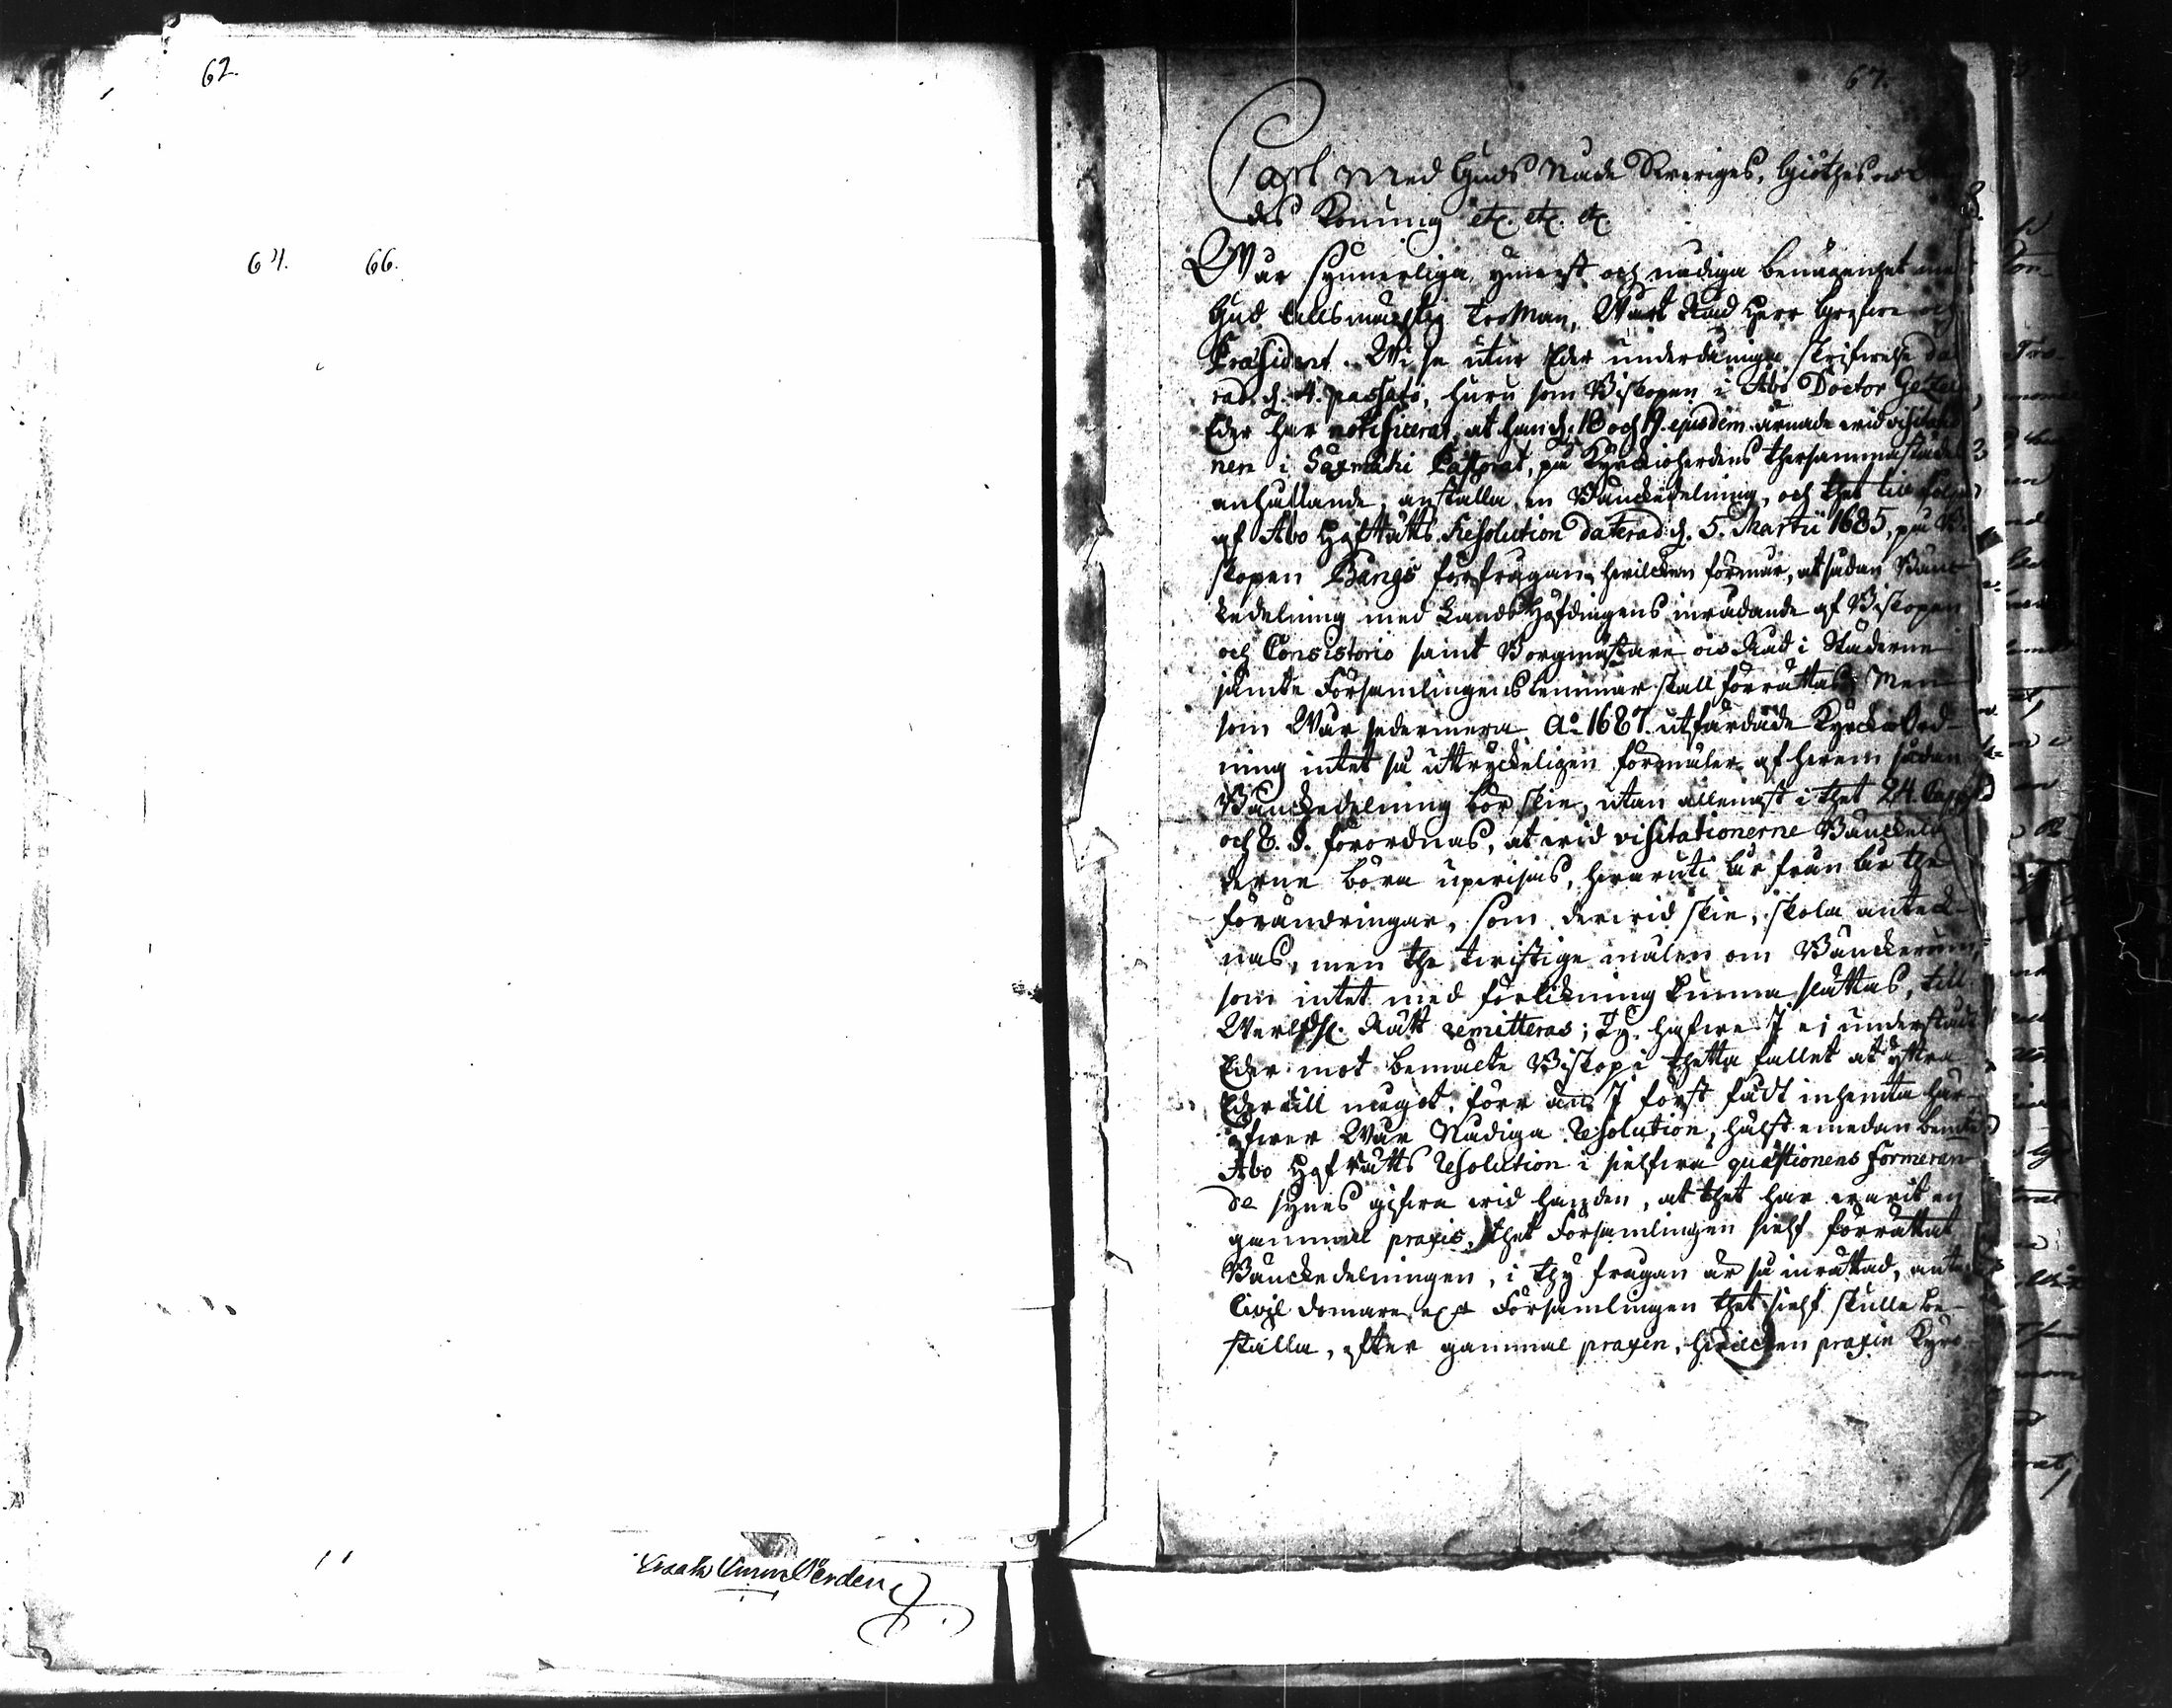 62.
64. 66.
67.
Carl Med Guds Nåde Sweriges, Giöthes och
des Konung etc. etc. etc.
Wår synnerliga ynnest och nådiga benägenhet med
Gud Allsmächtig TroMan, Wårt Råd Herr Grefwe och
Præsident. Wi se utur Eder underdånige skrifwelse da
rad d. 4. passato, huru som Biskopen i Åbo Doctor Gezel
Eder har notificerat, at han d. 18 och 19. ejusdem ärnade wid visitatio
nen i Saxmäki Pastorat, på Kyrckioherdens thersammastädes
anhållande, anställa en Bänckedelning, och thet till följe
af Åbo HofRätts Resolution daterad d. 5. Martii 1685, på Bi
skopen Bångs förfrågan, hwilcken förmår, at sådan Bänc
kedelning med LandsHöfdingens inrådande af Biskopen
och Consistorio samt Borgmästare och Råd i Städerne
jämte Församlingens ledmmär skall förrättas; Men
som Wår sedermera Ao 1687. utfärdade KyrckioOrd-
ning intet så uttryckeligen förmäler, af hwem sådan
Bänckedelning bör skie, utan allenast i thet 24. Cap.
och 8. §. förordnas, at wid visitationerne Bäncklä
derne böra upwisas, hwaruti år från år the
förändringar, som derwid skie, skola anteck-
nas, men the twistige målen om Bänckerum,
som intet med förlikning kunna slättas, till
Werldsl. Rätt remitteras; Ty hafwe I ei understådt
Eder mot bemälte Biskop i thetta fallet at yttra
Eder till något, förr än I först fådt inhemta här-
öfwer Wår Nådiga Resolution, hälst emedan bemte
Åbo HofRätts Resolution i sielfwa quæstionens formeran-
de synes gifwa wid handen, at thet har warit en
gammal praxis, thet Församlingen sielf förrättat
Bänckedelningen, i thy frågan är så inrättad, ante
Civil domare, eller Församlingen thet sielf skulle be-
ställa, efter gammal praxin, hwilcken praxin Kyrc-